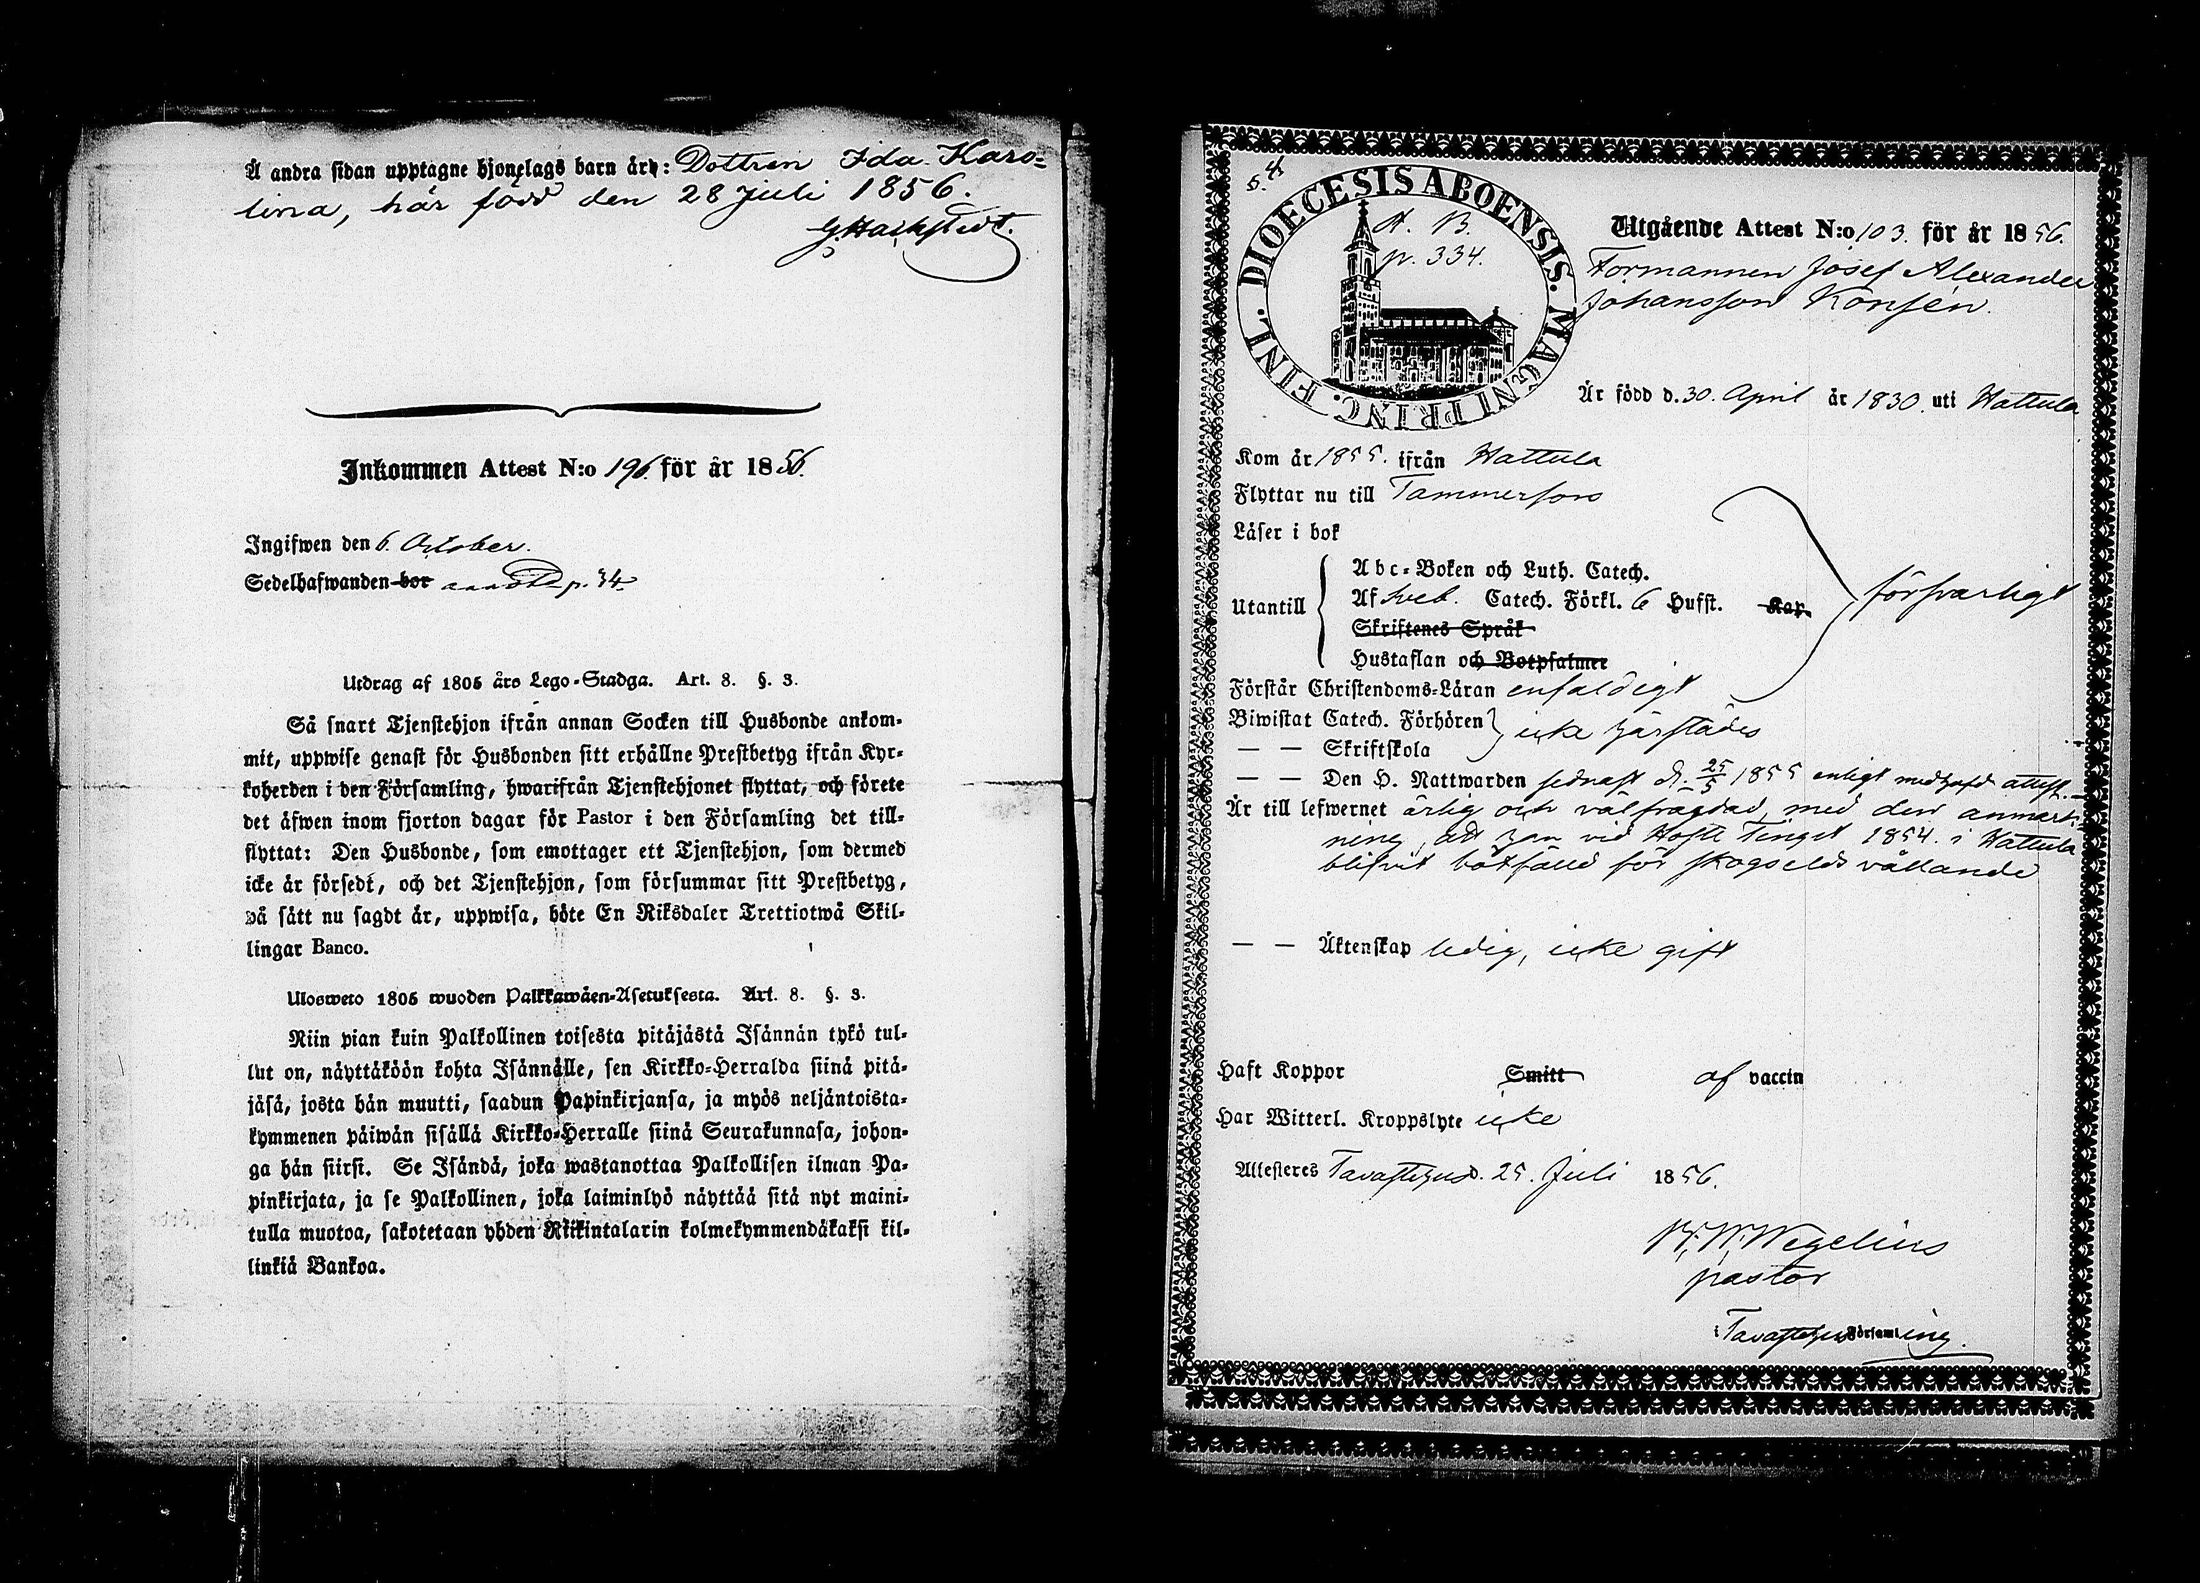 Å andra sidan upptagne hjonelags barn äro: Dottren Ida Karo-
lina, här född den 28 Juli 1856.
G. Hackstedt.
Inkommen Attest N:o 196. för år 1856.
Ingifwen den 6. October.
Sedelhafwanden bor p. 34
Utdrag af 1805 års Lego-Stadga. Art. 8. §. 3.
Så snart Tjenstehjon ifrån annan Socken till Husbonde ankom-
mit, uppwise genast för Husbonden sitt erhållne Prestbetyg ifrån Kyr-
koherden i den Församling, hwarifrån Tjenstehjonet flyttat, och förete
det äfwen inom fjorton dagar för Pastor i den Församling det till-
flyttat: Den Husbonde, som emottager ett Tjenstehjon, som dermed
icke är försedt, och det Tjenstehjon, som försummar sitt Prestbetyg,
på sätt nu sagdt är, uppwisa, böte En Riksdaler Trettiotwå Skil-
lingar Banco.
Ulosweto 1805 wuoden Palkkawäen-Asetuksesta. Art. 8. §. 3.
Niin pian kuin Palkollinen toisesta pitäjästä Isännän tykö tul-
lut on, näyttäköön kohta Isännälle, sen Kirkko-Herralda siinä pitä-
jäsä, josta hän muutti, saadun Papinkirjansa, ja myös neljäntoista-
kymmenen päiwän sisällä Kirkko-Herralle siinä Seurakunnasa, johon-
ga hän siirsi. Se Isändä, joka wastanottaa Palkollisen ilman Pa-
pinkirjata, ja se Palkollinen, joka laiminlyö näyttää sitä nyt maini-
tulla muotoa, sakotetaan yhden Riikintalarin kolmekymmendäkaksi kil-
linkiä Bankoa.
5.4
DIOECESIS ABOENSIS. MAGNI PRINC. FINL.
A. B.
p. 334.
Utgående Attest N:o 103. för år 1856.
Formannen Josef Alexander
Johansson Konsén.
Är född d. 30. April år 1830. uti Hattula
Kom år 1855. ifrån Hattula
Flyttar nu till Tammerfors
Läser i bok
Utantill
Abc-Boken och Luth. Catech.
Af Sveb. Catech. Förkl. 6 Hufst. Kap.
Skriftenes Språk
Hustaflan och Botpsalmer
försvarligt
Förstår Christendoms-Läran enfaldigt
Biwistat Catech. Förhören
— — Skriftskola
icke härstädes
— — Den H. Nattwarden sednast d. 25/5 1855 enligt medhafd attest.
Är till lefwernet ärlig och välfrägdad med den anmärk-
ning, att han vid Höste Tinget 1854. i Hattula
blifvit bötfälld för skogselds vållande
— — Äktenskap ledig, icke gift
Haft Koppor Smitt af vaccin
Har Witterl. Kroppslyte icke
Attesteres Tavastehus d. 25. Juli 1856.
Wegelius
pastor
i Tavastehus Församling.